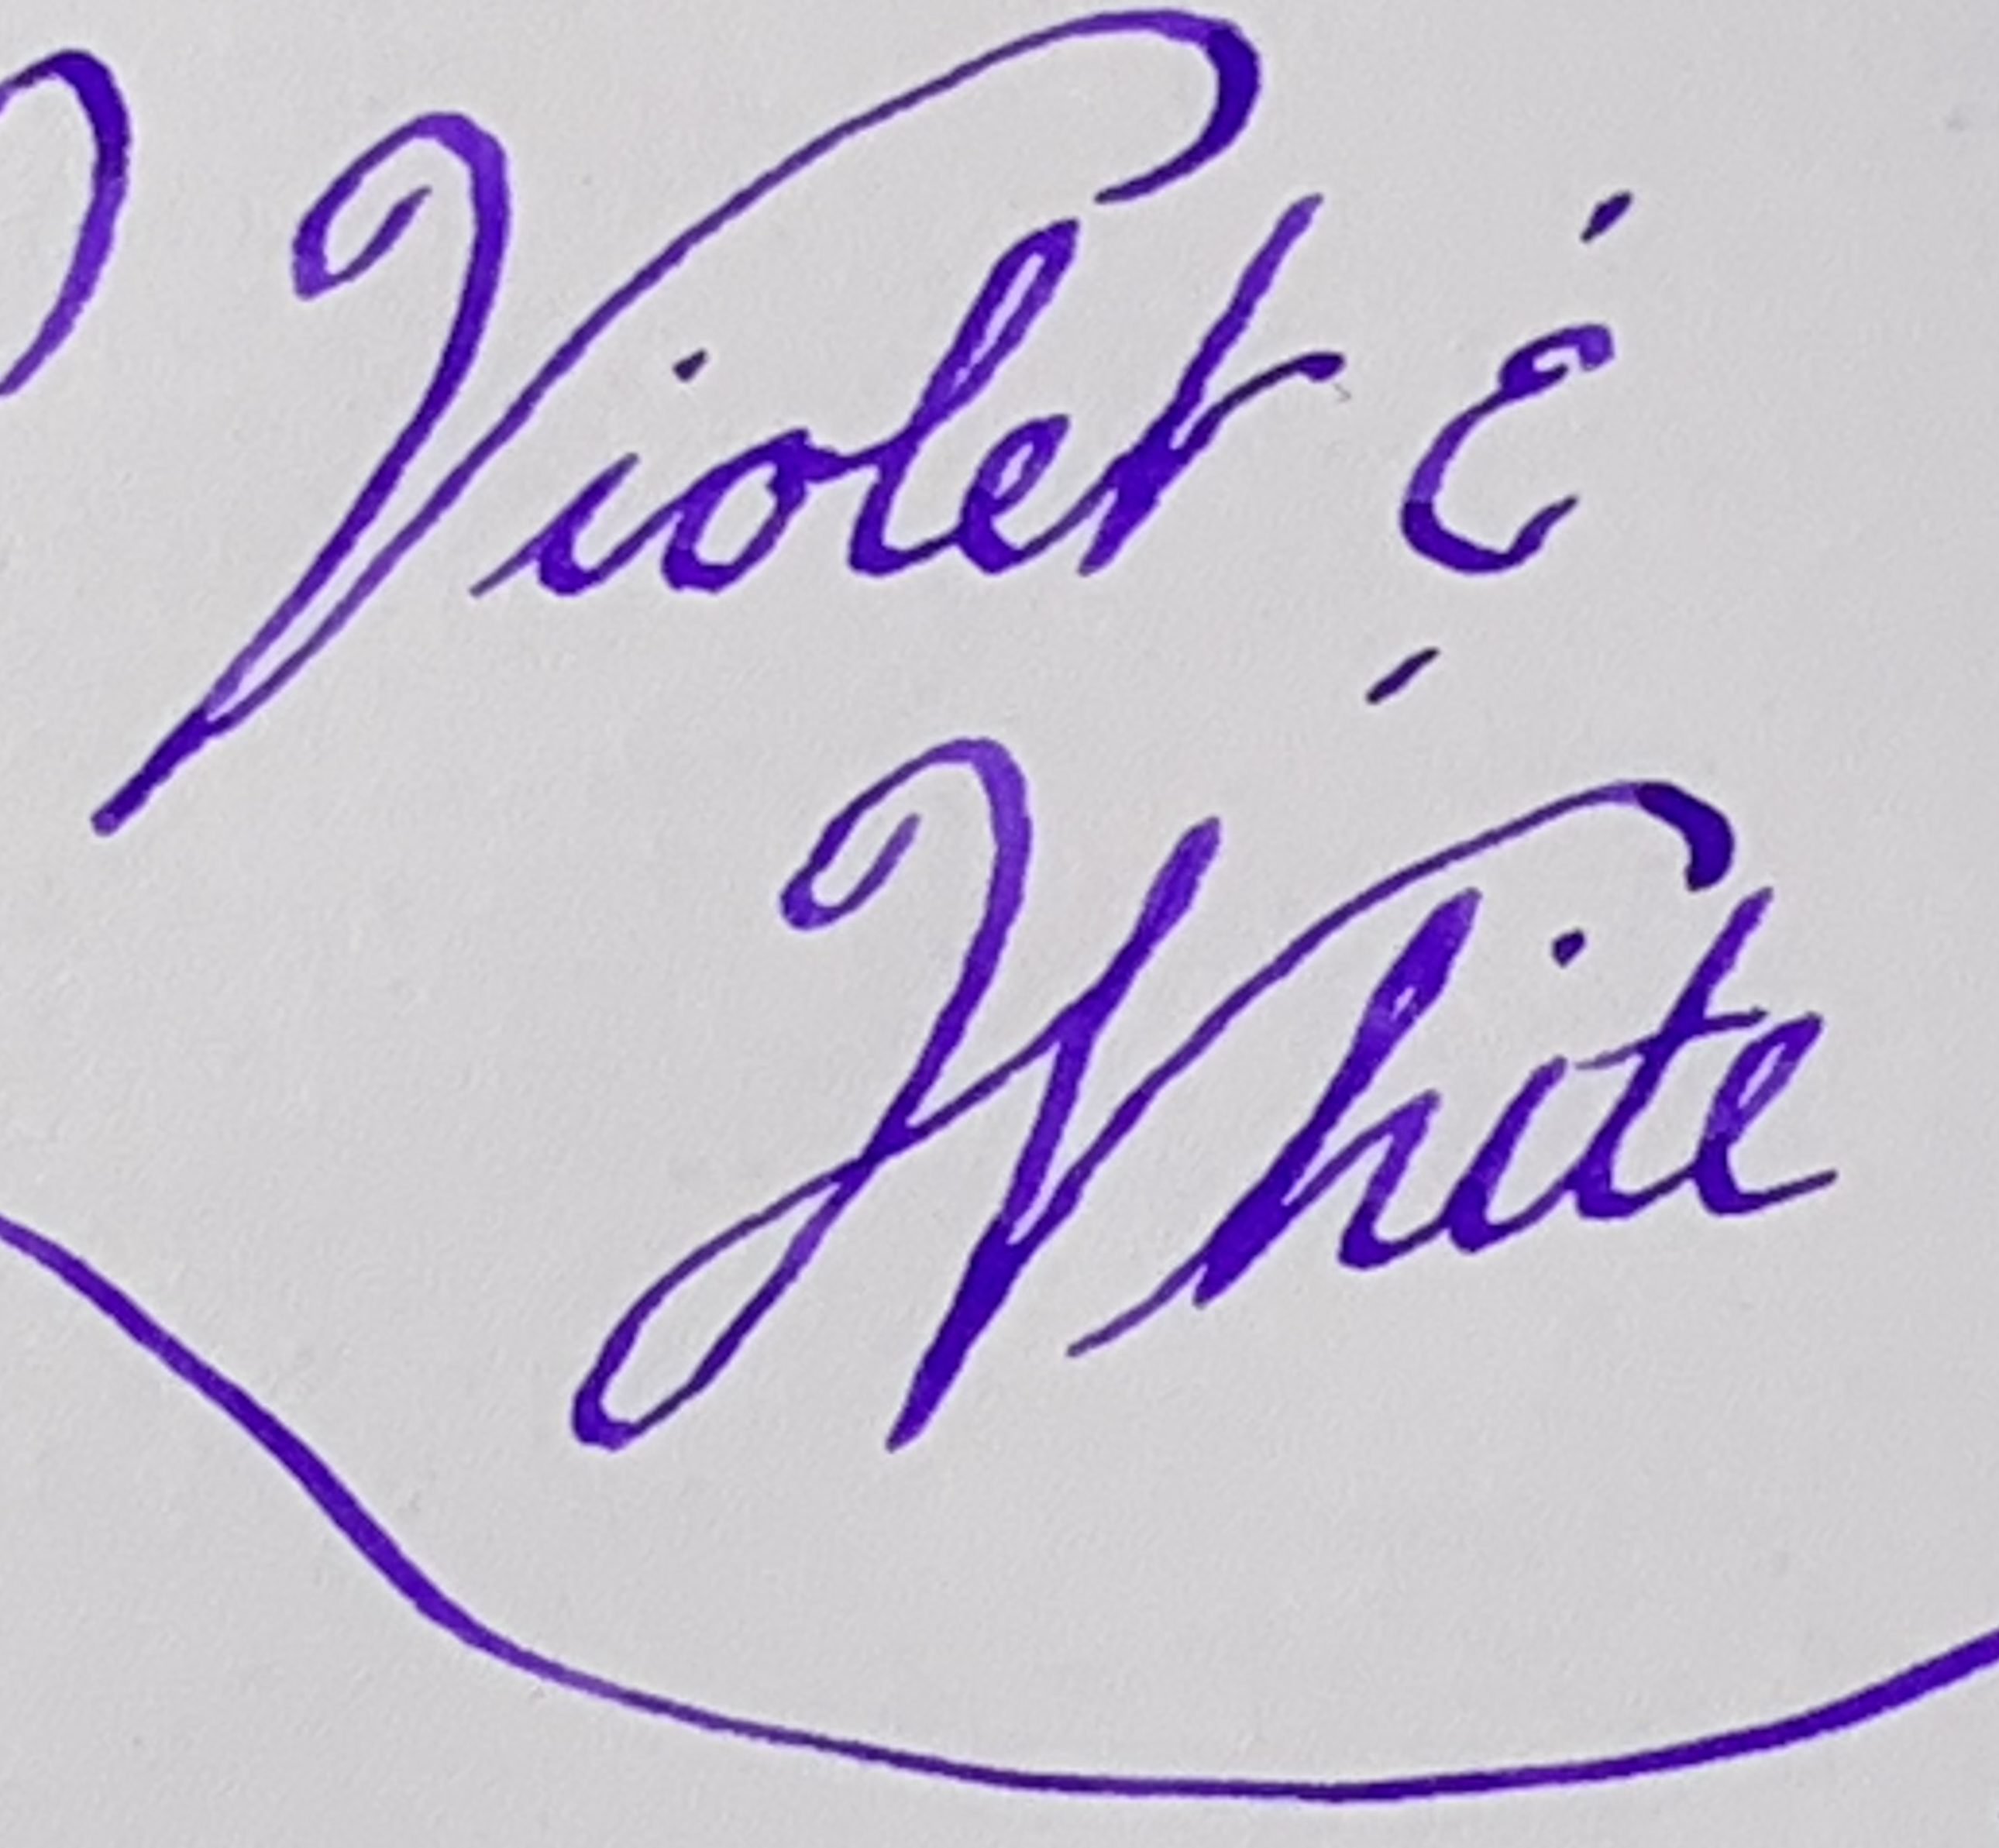 Violet &
White